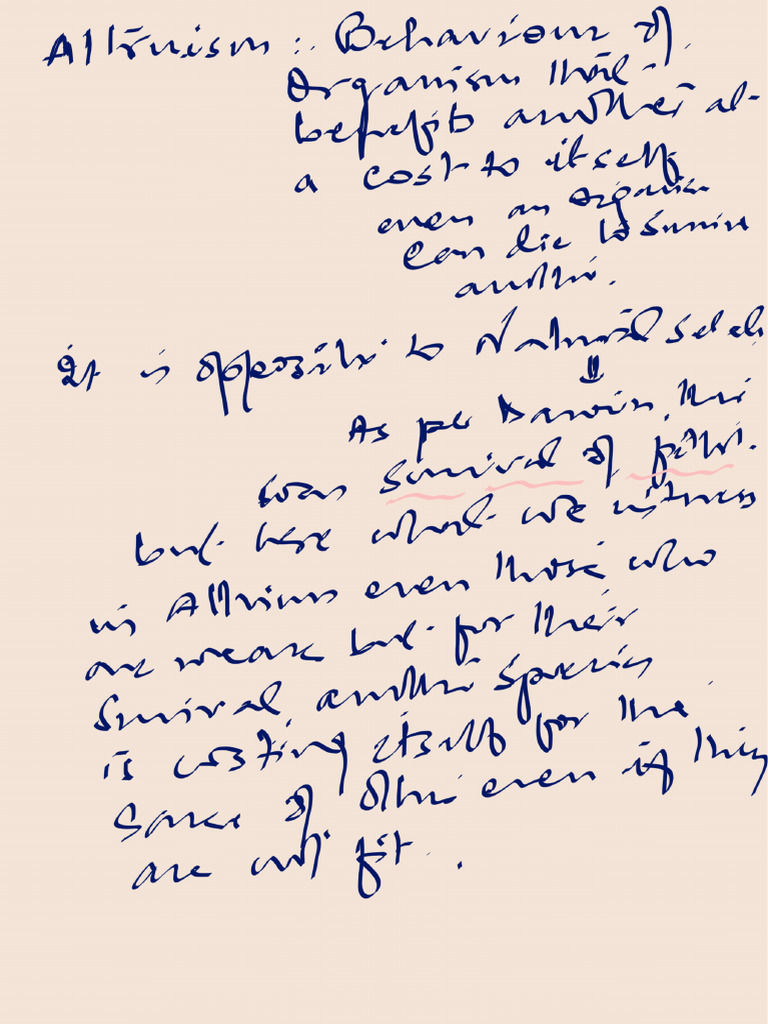 Altruism : Behaviour of
Organism that
benefits another at
a cost to itself
even an Organism
can die to survive
another.
It is opposite to Natural Selec
⇓
As per Darwin, this
was Survival of fittest.
but here what we witness
in Altruism even those who
are weak but for their
survival, another species
is costing itself for the
sake of other even if they
are not fit .